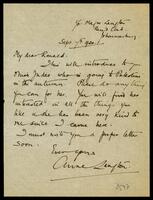 c/o Major Langton
Sept. 19
My dear Ronald.
This will introduce to you
Miss Index who is going to Palestine
in the autumn. Please do any thing
you can for her. You will find her
interested in all the things you
like & she has been very kind to
me since I came here.
I must write you a proper letter
soon.
Ever yours
Anne Langton